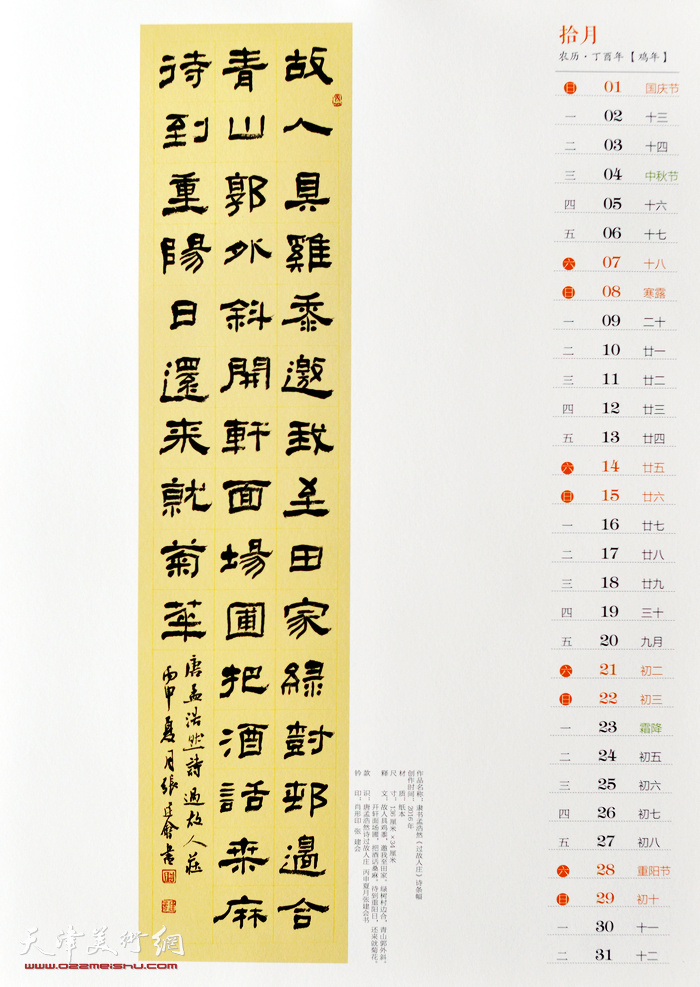 故人具雞黍邀我至田家綠樹邨邊合
青山郭外斜開軒面場圃把酒話桑麻
待到重陽日還來就菊華
唐孟浩然詩過故人莊
丙申夏月張建會書
作品名称：隶书孟浩然《过故人庄》诗条幅
创作时间：2016年
材 质：纸本
尺 寸：180厘米×34厘米
释 文：故人具鸡黍，邀我至田家。绿树村边合，青山郭外斜。
开轩面场圃，把酒话桑麻。待到重阳日，还来就菊花。
款 识：唐孟浩然诗过故人庄 丙申夏月张建会书
钤 印：肖形印 张 建会
拾月
农历·丁酉年【鸡年】
日 01 国庆节
一 02 十三
二 03 十四
三 04 中秋节
四 05 十六
五 06 十七
六 07 十八
日 08 寒露
一 09 二十
二 10 廿一
三 11 廿二
四 12 廿三
五 13 廿四
六 14 廿五
日 15 廿六
一 16 廿七
二 17 廿八
三 18 廿九
四 19 三十
五 20 九月
六 21 初二
日 22 初三
一 23 霜降
二 24 初五
三 25 初六
四 26 初七
五 27 初八
六 28 重阳节
日 29 初十
一 30 十一
二 31 十二
天津美術網
www.022meishu.com